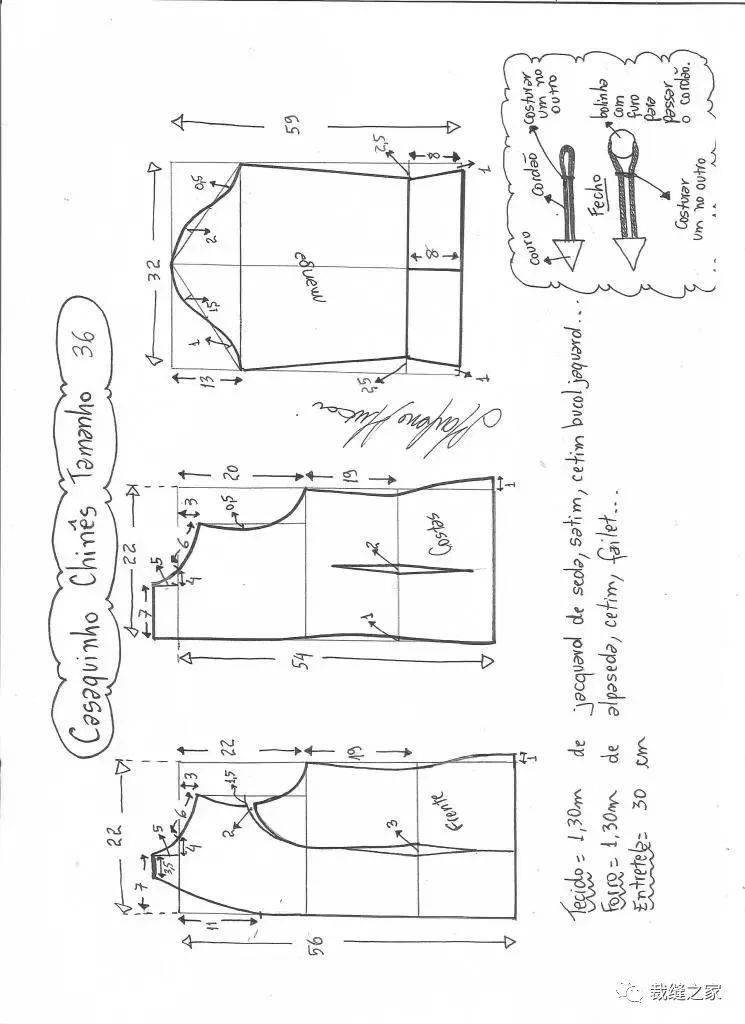 Casaquinho Chinês Tamanho 36
22
7
3,5
5
4
6
3
11
56
22
19
1,5
2
3
1
Frente
22
7
5
4
6
3
20
19
0,5
2
1
54
1
Costas
32
13
59
1
1,5
2
0,5
manga
2,5
2,5
8
8
1
1
couro
cordão
costurar
um no
outro
Fecho
bolinha
com
furo
para
passar
o cordão.
Costurar
um no outro
Tecido = 1,30m de jacquard de seda, satim, cetim bucol jaquard...
Forro = 1,30m de alpaseda, cetim, failet...
Entretela= 30 cm
裁缝之家